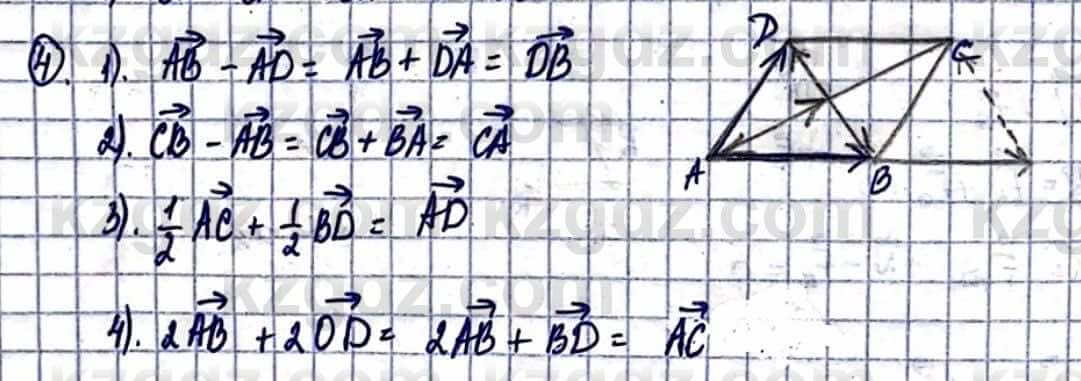 ④. 1). AB⃗ - AD⃗ = AB⃗ + DA⃗ = DB⃗
2). CB⃗ - AB⃗ = CB⃗ + BA⃗ = CA⃗
3). 1/2 AC⃗ + 1/2 BD⃗ = AD⃗
4). 2AB⃗ + 2OD⃗ = 2AB⃗ + BD⃗ = AC⃗
D C
A B
kzgdz.com